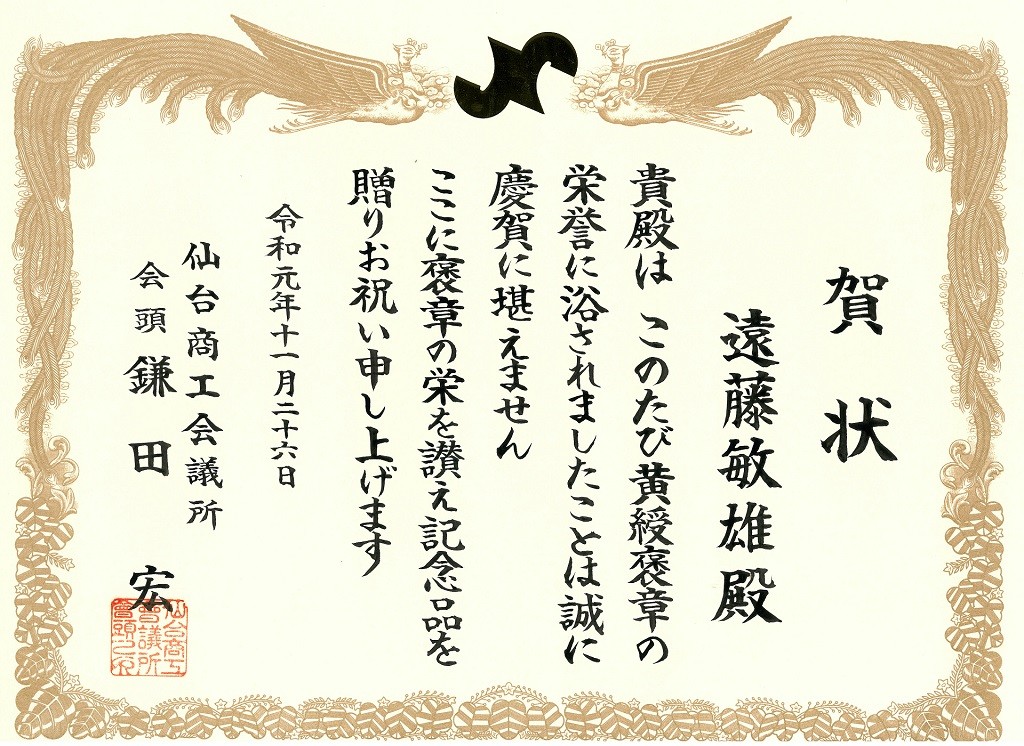 賀状
遠藤敏雄殿
貴殿は このたび黄綬褒章の
栄誉に浴されましたことは誠に
慶賀に堪えません
ここに褒章の栄を讃え記念品を
贈りお祝い申し上げます
令和元年十一月二十六日
仙台商工会議所
会頭 鎌田 宏
仙台商工
會議所
會頭之印